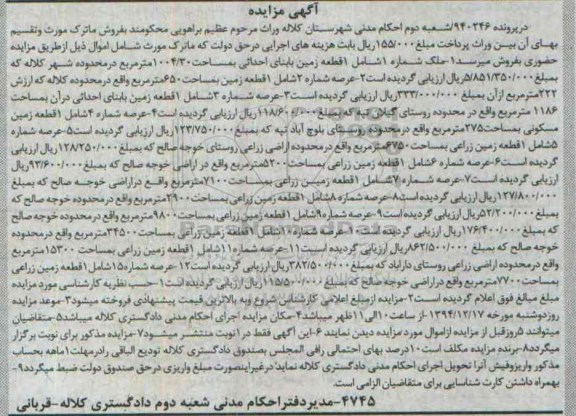 آگهی مزایده
درپرونده ۹۴۰۲۴۶/شعبه دوم احکام مدنی شهرستان کلاله وراث مرحوم عظیم براهویی محکومند بفروش ماترک مورث وتقسیم
بهای آن بین وراث پرداخت مبلغ ۱۵۵/۰۰۰ریال بابت هزینه های اجرایی درحق دولت که ماترک مورث شامل اموال ذیل ازطریق مزایده
حضوری بفروش میرسد۱-ملک شماره ۱شامل ۱قطعه زمین بابنای احداثی بمساحت ۱۰۰۴/۳۰مترمربع درمحدوده شهر کلاله که
بمبلغ ۵/۸۵۱/۳۵۰/۰۰۰ریال ارزیابی گردیده است۲-عرصه شماره ۲شامل ۱قطعه زمین بمساحت ۶۵۰مترمربع واقع درمحدوده کلاله که ارزش
۲۲۲مترمربع ازآن بمبلغ ۳۳۳/۰۰۰/۰۰۰ریال ارزیابی گردیده است۳-عرصه شماره ۳شامل ۱قطعه زمین بابنای احداثی درآن بمساحت
۱۱۸۶ مترمربع واقع در محدوده روستای گیلان تپه که بمبلغ ۱۱۸/۶۰۰/۰۰۰ریال ارزیابی گردیده است۴-عرصه شماره ۴شامل ۱قطعه زمین
مسکونی بمساحت۲۷۵مترمربع واقع درمحدوده روستای بلوچ آباد تپه که بمبلغ ۱۲۳/۷۵۰/۰۰۰ریال ارزیابی گردیده است۵-عرصه شماره
۵شامل ۱قطعه زمین زراعی بمساحت ۶۷۵۰مترمربع واقع درمحدوده اراضی زراعی روستای خوجه صالح که بمبلغ ۱۲۸/۲۵۰/۰۰۰ریال ارزیابی
گردیده است۶-عرصه شماره ۶شامل ۱قطعه زمین زراعی بمساحت ۵۲۰۰مترمربع واقع در اراضی خوجه صالح که بمبلغ ۹۳/۶۰۰/۰۰۰ریال
ارزیابی گردیده است۷-عرصه شماره ۷شامل ۱قطعه زمین زراعی بمساحت ۷۱۰۰مترمربع واقع دراراضی خوجه صالح که بمبلغ
۱۲۷/۸۰۰/۰۰۰ریال ارزیابی گردیده است۸-عرصه شماره ۸شامل ۱قطعه زمین زراعی بمساحت ۲۹۰۰مترمربع واقع درمحدوده خوجه صالح که
بمبلغ ۵۲/۲۰۰/۰۰۰ریال ارزیابی گردیده است۹-عرصه شماره ۹شامل ۱قطعه زمین زراعی بمساحت ۹۸۰۰مترمربع واقع درمحدوده خوجه صالح
که بمبلغ ۱۷۶/۴۰۰/۰۰۰ریال ارزیابی گردیده است۱۰-عرصه شماره ۱۰شامل ۱قطعه زمین زراعی بمساحت ۳۴۵۰۰مترمربع واقع درمحدوده
خوجه صالح که بمبلغ ۸۶۲/۵۰۰/۰۰۰ریال ارزیابی گردیده است۱۱-عرصه شماره ۱۱شامل ۱قطعه زمین زراعی بمساحت ۱۵۳۰۰مترمربع
واقع درمحدوده اراضی زراعی روستای داراباد که بمبلغ ۳۸۲/۵۰۰/۰۰۰ریال ارزیابی گردیده است۱۲-عرصه شماره ۱۵شامل ۱قطعه زمین زراعی
بمساحت ۷۷۰۰مترمربع واقع دراراضی خوجه صالح که بمبلغ ۱۱۵/۵۰۰/۰۰۰ریال ارزیابی گردیده است۱-حسب نظریه کارشناسی مورد مزایده
مبلغ مبالغ فوق اعلام گردیده است۲-مزایده ازمبلغ اعلامی کارشناس شروع وبه بالاترین قیمت پیشنهادی فروخته میشود۳-موعد مزایده
روزدوشنبه مورخه ۱۳۹۴/۱۲/۱۷ از ساعت ۱۰الی ۱۱ظهر میباشد۴-مکان مزایده اجرای احکام مدنی دادگستری کلاله میباشد۵-متقاضیان
میتوانند ۵روزقبل از مزایده ازاموال مورد مزایده دیدن نمایند ۶-این آگهی فقط در۱نوبت منتشر میشود۷-مزایده مذکور برای نوبت برگزار
میگردد۸-برنده مزایده مکلف است ۱۰درصد بهای احتمالی رافی المجلس بصندوق دادگستری کلاله تودیع الباقی رادرمهلت ۱ماهه بحساب
مذکور واریزوفیش آنرا تحویل اجرای احکام مدنی دادگستری کلاله نماید درغیراینصورت مبلغ واریزی درحق صندوق دولت ضبط میگردد۹-
بهمراه داشتن کارت شناسایی برای متقاضیان الزامی است.
۴۷۴۵-مدیردفتراحکام مدنی شعبه دوم دادگستری کلاله-قربانی